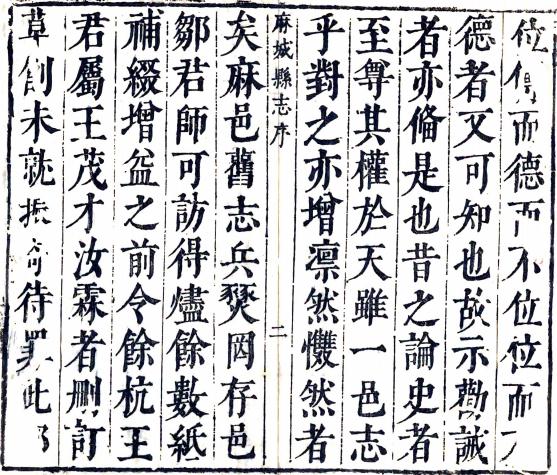 位俱而德而不位位而不
德者又可知也故示勸誡
者亦俻是也昔之論史者
至尊其權於天雖一邑志
乎對之亦增凛然戄然者
麻城縣志序 二
矣麻邑舊志兵燹罔存邑
鄒君師可訪得燼餘數紙
補綴增益之前令餘杭王
君屬王茂才汝霖者刪訂
草創未就振奇待罪此